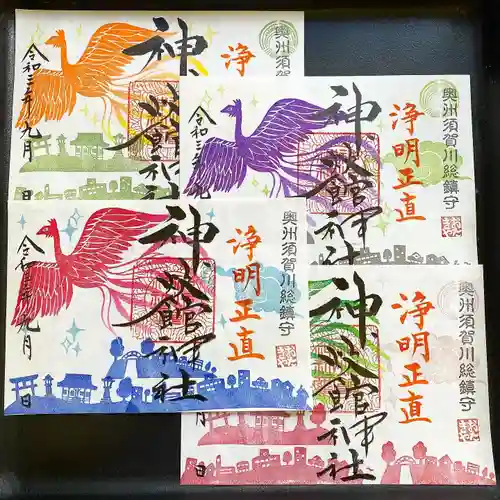 奥州須賀
浄
神炊館社
令和三年九月 日
奥州須賀川総鎮守
浄明正直
神炊館神社
令和三年九
奥州須賀川総鎮守
浄明正直
神炊館神社
令和三年九月 日
奥州須賀川総鎮守
浄明正直
神炊館神社
月 日